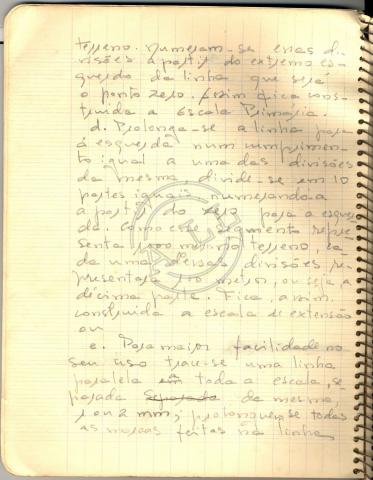 terreno. Numeram-se essas di-
visões a partir do extremo es-
querdo da linha que será
o ponto zero. Assim fica cons-
truida a Escala Primária.
d. Prolonga-se a linha para
á esquerda num cumprimen-
to igual a uma das divisões
da mesma, divide-se em 10
partes iguais numerando-a
a partir do zero para a esquer-
da. Como esse segmento repre-
senta 100 no terreno, ca-
da uma dessas divisões re-
presentará 10 metros, ou seja a
décima parte. Fica, assim,
construida a escala de extensão
ou
e. Para maior facilidade no
seu uso trace-se uma linha
paralela a toda a escala, se
parada Separada da mesma,
1 ou 2 mm; prolonguem-se todas
as marcas feitas na linha